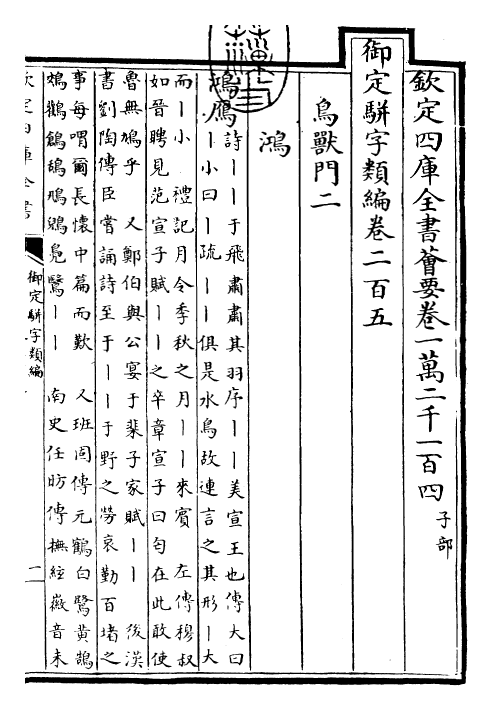 欽定四庫全書薈要卷一萬二千一百四 子部
御定駢字類編卷二百五
鳥獸門二
鴻
鴻鴈 詩丨丨于飛肅肅其羽序丨丨美宣王也傳大曰
丨小曰丨疏丨丨俱是水鳥故連言之其形丨大
而丨小 禮記月令季秋之月丨丨來賓 左傳穆叔
如晉聘見范宣子賦丨丨之卒章宣子曰匄在此敢使
魯無鳩乎 又鄭伯與公宴于棐子家賦丨丨 後漢
書劉陶傳臣嘗誦詩至于丨丨于野之勞哀勤百堵之
事每喟爾長懷中篇而歎 又班固傳元鶴白鷺黃鵠
鵁鸛鶬鴰鴇鶂鳧鷖丨丨 南史任昉傳撫絃徽音未
欽定四庫全書
御定駢字類編